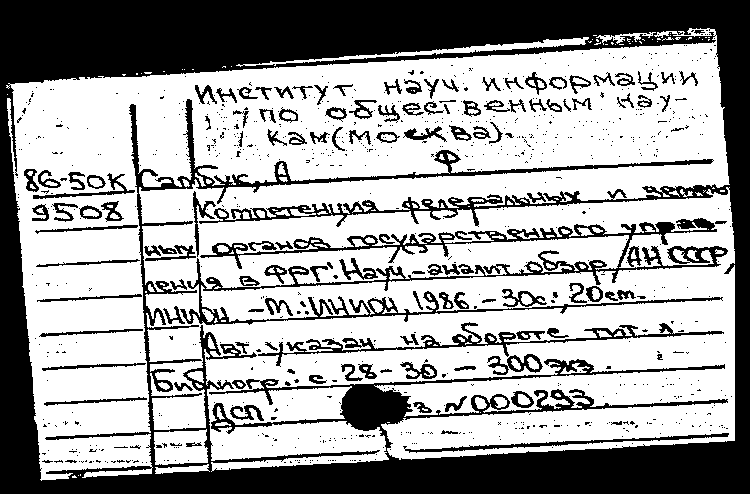 Институт науч. информации
по общественным нау-
кам (Москва).
Ф
86-50К Самбук, А
9508 Компетенция федеральных и земель-
ных органов государственного управ-
ления в ФРГ: Науч.-аналит. обзор / АН СССР,
ИНИОН. - М.: ИНИОН, 1986. - 30с.; 20см.
Авт. указан на обороте тит. л.
Библиогр.: с. 28-30. - 300 экз.
ДСП. №000293